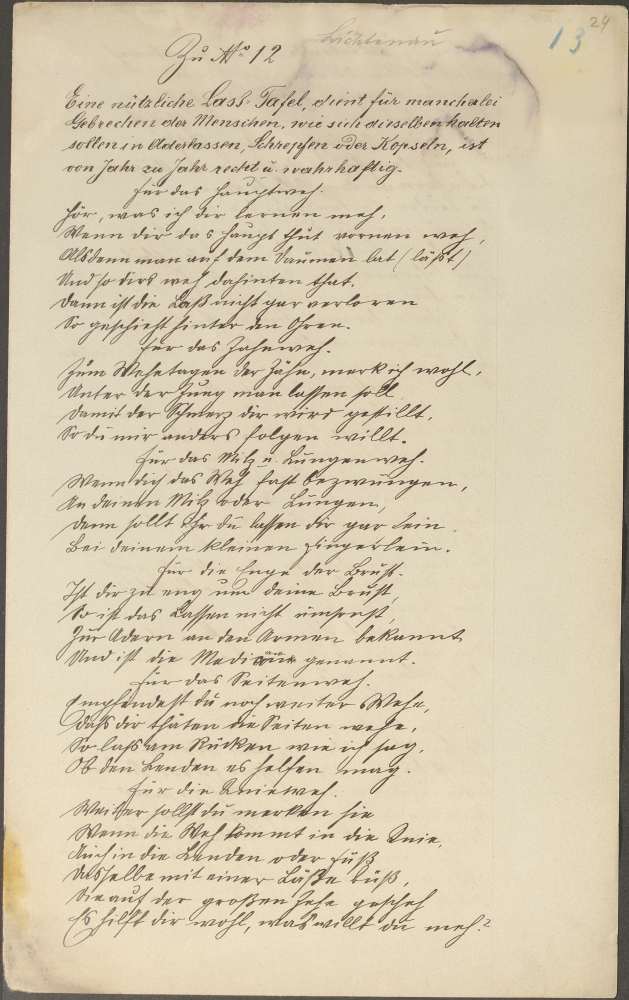 24
13
Lichtenau
Zu No 12
Eine nützliche Lass-Tafel, dient für mancherlei
Gebrechen der Menschen, wie sich dieselben halten
sollen in Aderlassen, Schrepfen oder Köpseln, ist
von Jahr zu Jahr recht u. wahrhaftig.
Für das Hauptweh.
Hör, was ich dir lernen meh,
Wenn dir das Haupt thut vornen weh,
Alsdann man auf dem Daumen lat (läßt)
Und so dirs weh dahinten that.
Dann ist die Laß nicht gar verloren
So geschieht hinter den Ohren.
Für das Zahnweh.
Zum Wehetagen der Zähn, merk ich wohl,
Unter der Zung man lassen soll
Damit der Schmerz dir wird gestillt,
So du mir anders folgen willt.
Für das Milz u. Lungenweh.
Wenn dich das Weh hast bezwungen,
An deinen Milz oder Lungen,
Dann sollt Ihr du lassen dir gar fein
Bei deinem kleinen Fingerlein.
Für die Enge der Brust.
Ist dir zu eng um deine Brust,
So ist das Lassen nicht umsonst,
Zur Adern an den Armen bekannt
Und ist die genannt.
Für das Seitenweh.
Empfindest du noch weiter Wehe,
Daß dir thäten die Seiten wehe,
So laß am Rücken wie ich sag,
Ob den Lenden es helfen mag.
Für die Knieweh.
Weiter sollst du merken hie
Wenn die Weh kommt in die Knie,
Auch in die Lenden oder Füß
Dasselbe mit einer Läße büß,
Die auf der großen Zehe gescheh
Es hilft dir wohl, was willt du meh?